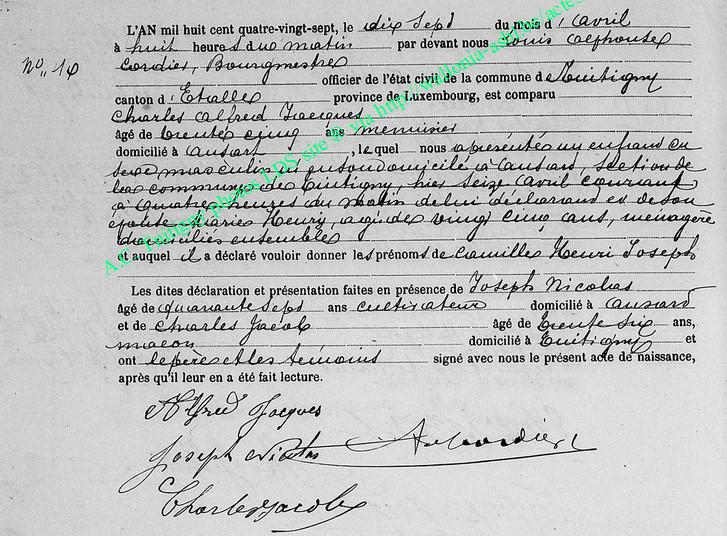 L'AN mil huit cent quatre-vingt-sept, le dix Sept du mois d'Avril
No.. 14
à huit heures du matin par devant nous Louis Alphonse
Cordier, Bourgmestre
officier de l'état civil de la commune de Tintigny
canton d'Etalle province de Luxembourg, est comparu
Charles Alfred Jacques
âgé de trente cinq ans menuisier
domicilié à Ansart, lequel nous a présenté un enfant du
sexe masculin né en son domicile à Ansart, section de
la commune de Tintigny, hier seize Avril courant
à quatre heures du matin de lui déclarant et de son
épouse Marie Henry, agée de vingt cinq ans, ménagère
domiciliés ensemble
et auquel il a déclaré vouloir donner les prénoms de Camille Henri Joseph
Les dites déclaration et présentation faites en présence de Joseph Nicolas
âgé de quarante sept ans cultivateur domicilié à Ansart
et de Charles Jacob âgé de trente six ans,
maçon domicilié à Tintigny et
ont le père et les témoins signé avec nous le présent acte de naissance,
après qu'il leur en a été fait lecture.
Alfred Jacques
Joseph Nicolas Cordier
Charles Jacob
A.C. Tintigny photos LDS, site @ via http://wallonia-asbl.eu/actes